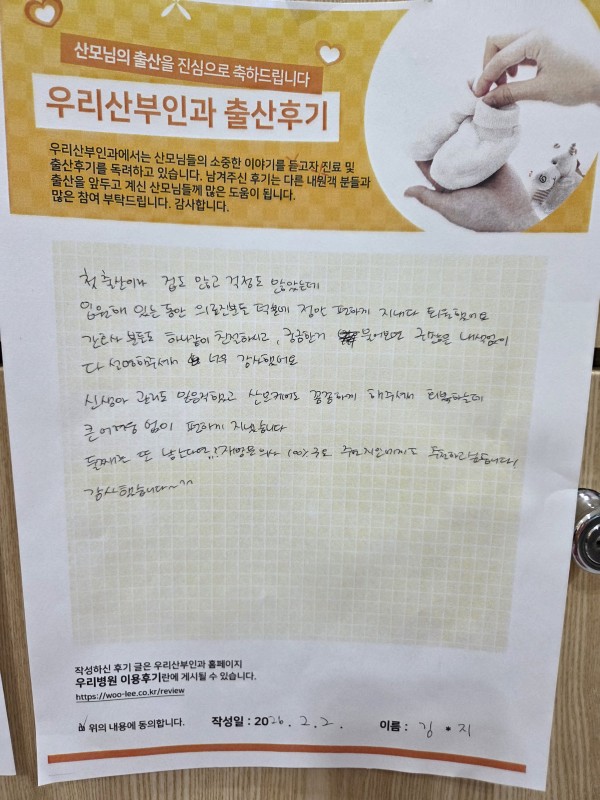 산모님의 출산을 진심으로 축하드립니다
우리산부인과 출산후기
우리산부인과에서는 산모님들의 소중한 이야기를 듣고자 진료 및
출산후기를 독려하고 있습니다. 남겨주신 후기는 다른 내원객 분들과
출산을 앞두고 계신 산모님들께 많은 도움이 됩니다.
많은 참여 부탁드립니다. 감사합니다.
첫 출산이라 겁도 많고 걱정도 많았는데
입원해 있는동안 의료진분들 덕분에 정말 편하게 지내다 퇴원했어요
간호사 분들도 하나같이 친절하시고, 궁금한거 물어보면 귀찮은 내색없이
다 설명해주셔서 너무 감사했어요
신생아 관리도 믿음직했고 산모케어도 꼼꼼하게 해주셔서 회복하는데
큰 어려움 없이 편하게 지냈습니다
둘째도 또 낳는다면 재방문의사 100% 주변 지인에게도 추천하고싶습니다!
감사했습니다~^^
작성하신 후기 글은 우리산부인과 홈페이지
우리병원 이용후기란에 게시될 수 있습니다.
https://woo-lee.co.kr/review
위의 내용에 동의합니다. 작성일 : 2026. 2. 2. 이름 : 김 * 지